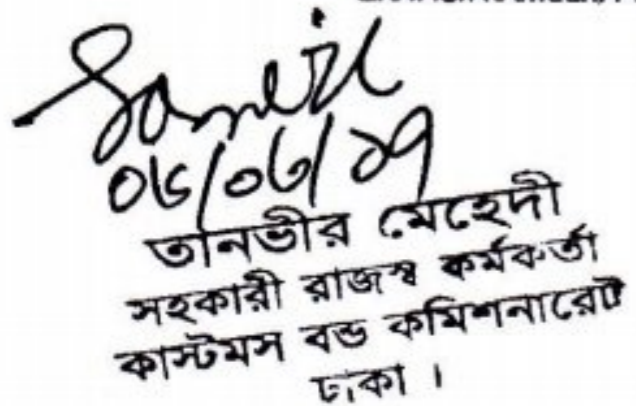 ০৮/০৬/১৭
তানভীর মেহেদী
সহকারী রাজস্ব কর্মকর্তা
কাস্টমস বন্ড কমিশনারেট
ঢাকা ।